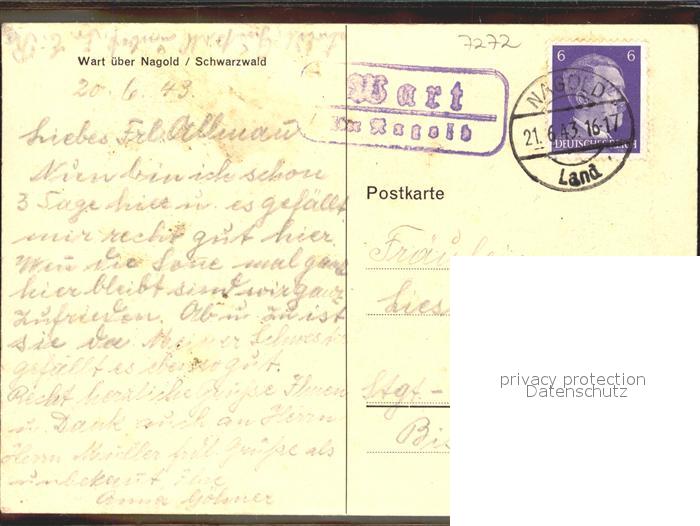 Wart über Nagold / Schwarzwald
20./6.43.
Liebes Frl. Allmau
Nun bin ich schon
3 Tage hier u. es gefällt
mir recht gut hier.
Wen die Sone mal ganz
hier bleibt sind wir ganz
zufrieden. Ab u. zu ist
sie da. Meiner Schwest.
gefällt es ebenso gut.
Recht herzliche Grüße Ihnen
u. Dank auch an Herrn
Herrn Müller frdl. Grüße als
unbekannt. Ihre
Anna Göhner
7272
Wart
über Nagold
6 6
DEUTSCHES REICH
NAGOLD
21.6.43.16-17
Land
Postkarte
Fräulein
Lies
Stgt.-
Bis
privacy protection
Datenschutz